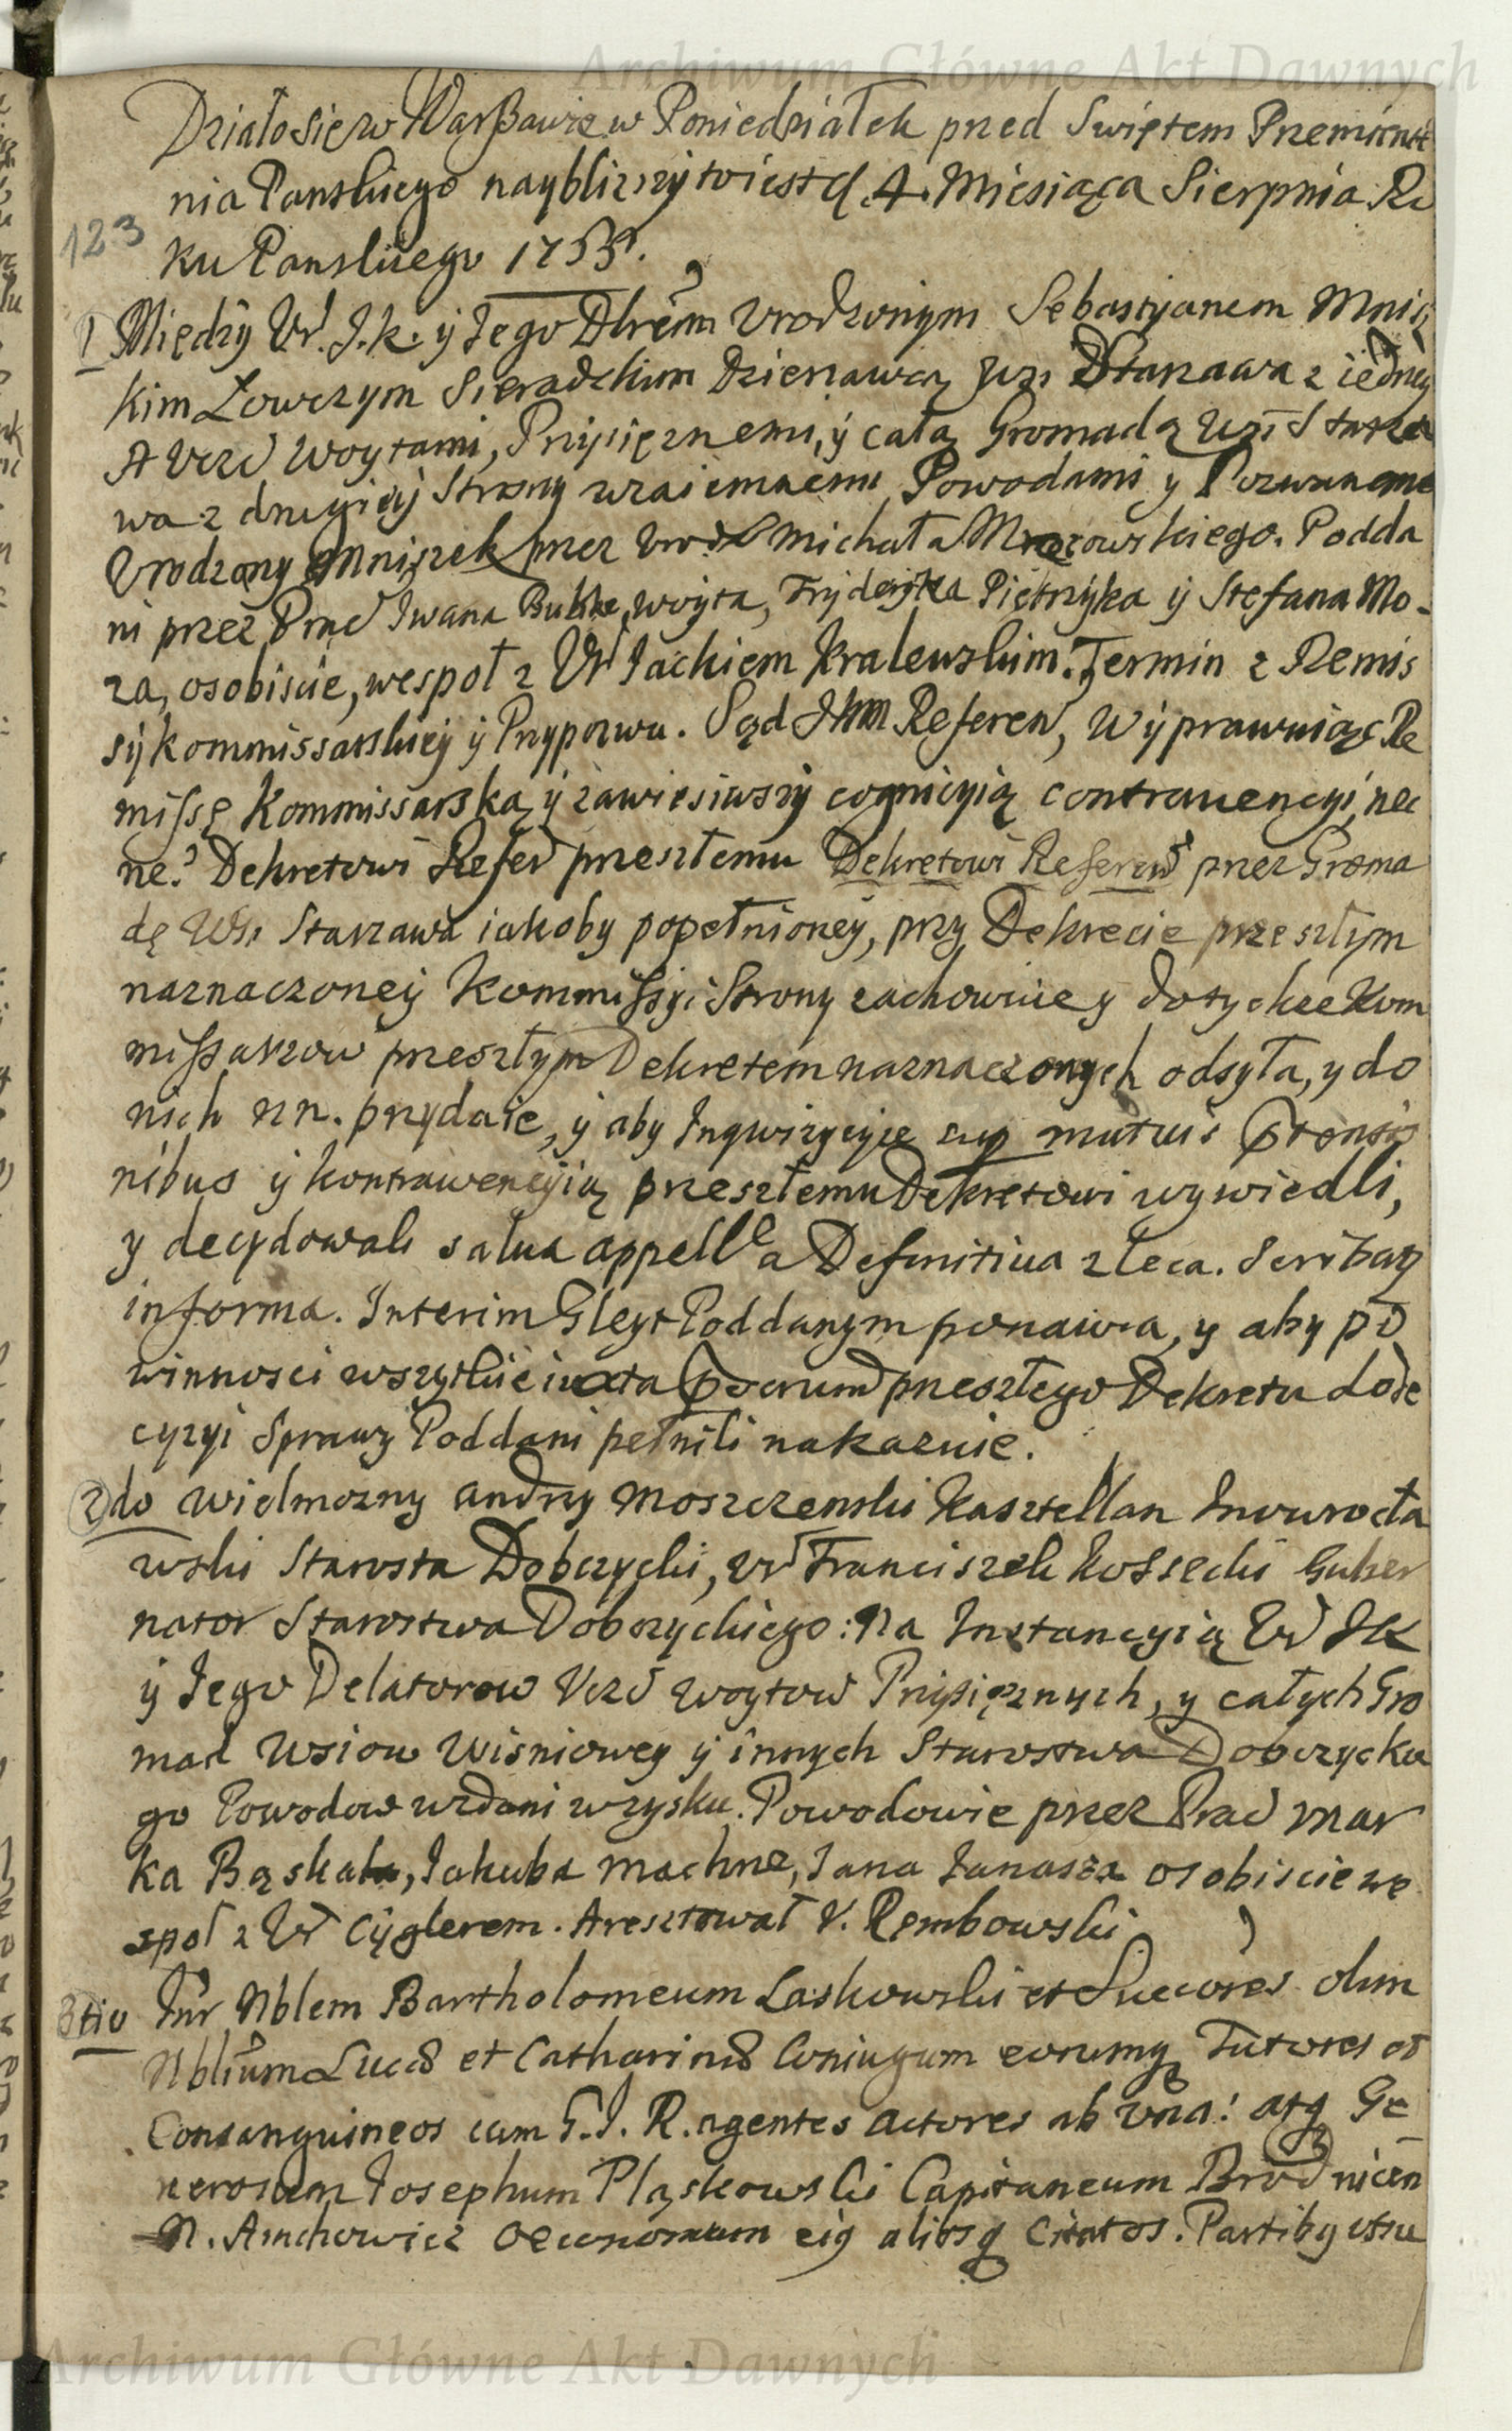 Archiwum Główne Akt Dawnych
Działo się w Warszawie w Poniedziałek przed Swiętem Przemiene
nia Panskiego nayblizszy to iest d. 4. Miesiąca Sierpnia Ro
123
ku Panskiego 1755.
1 Między Ur. I. k. y Jego Dlrem Urodzonym Sebastyanem Mnisz
kim Łowczym Sieradzkim Dzierzawcą Wsi Starzawa z iedney
A Uczc Woytami, Przysięznemi, y całą Gromadą Wsi Starza
wa z drugiey Strony wzaiemnemi Powodami y Pozwanemi
Urodzony Mniszek przez Urodz Michała Mrozowskiego. Podda
ni przez Prac Iwana Bubke, woyta, Fryderyka Piętrzyka y Stefana Mo-
za, osobiscie, wespoł z Ur Jackiem Kralewskim. Termin z Remis
sy kommissarskiey y Przypozwu. Sąd JKM Referen, Wyprawuiąc Re
missę Kommissarską y zawiesiwszy cognicyią contrauencyi, nec
ne? Dekretowi Refer przeszłemu Dekretowi Referen przez Groma
dę Wsi Starzawa iakoby popełnioney, przy Dekrecie przeszłym
naznaczoney Kommissyi Strony zachowuie y dotychze Kom
missarzow przeszłym Dekretem naznaczonych odsyła, y do
nich nn. przydaie, y aby Inqwizycyie sup mutuis prtensio
nibus y kontrawencyią przeszłemu Dekretowi wywiedli,
y decydowali salua appelle a Definitiua zleca. Scribag
in forma. Interim Gleyt Poddanym ponawia, y aby po
winnosci wszytkie iuxta prdcrum przeszłego Dekretu do de
cyzyi Sprawy Poddani pełnili nakazuie.
2do Wielmozny Andrzy Moszczenski Kasztellan Inowrocła
wski Starosta Dobczycki, Ur Franciszek Kossecki Guber
nator Starostwa Dobczyckiego: Na Instancyią Ur IK
y Jego Delatorow Uczc woytow Przysięznych, y całych Gro
mad Wsiow Wisniowey y innych Starostwa Dobczyckie
go Powodow wzdani w zysku. Powodowie przez Prac Mar
ka Bąskala, Jakuba Machne, Jana Janasza osobiscie we
społ z Ur Cyglerem. Aresztował U. Rembowski
3tio Intr Nblem Bartholomeum Laskowski et Succores olim
Nblium Lucæ et Catharinæ Coniugum eorumq Tutores et
Consanguineos cum G. I. R. agentes actores ab una: atq Ge
nerosum Josephum Pląskowski Capitaneum Brodnicen
N. Amchowicz Oeconomum eig aliosq Citatos. Partibg utrie
Archiwum Główne Akt Dawnych